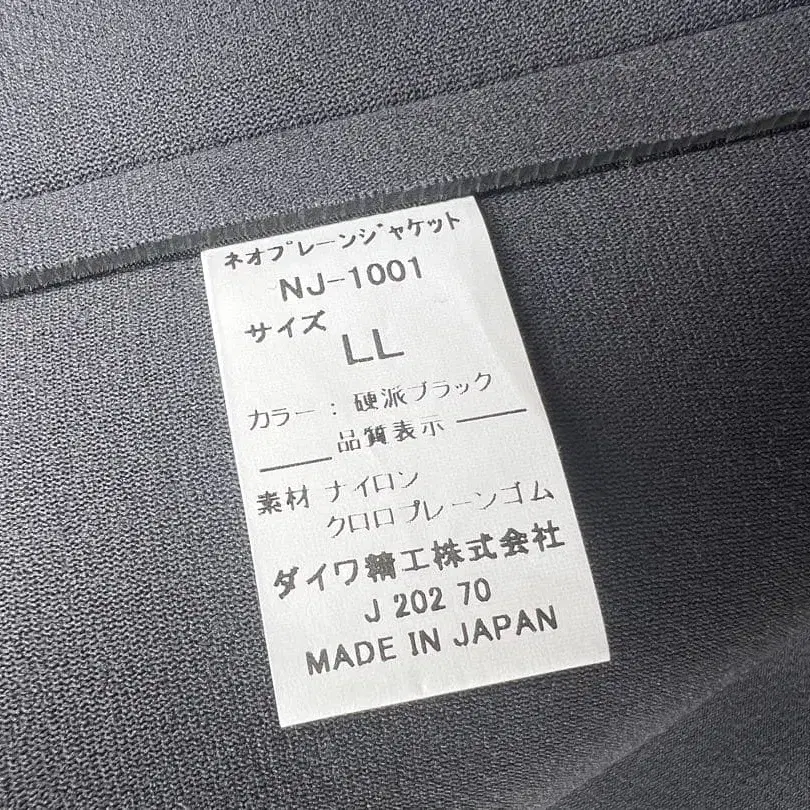 ネオプレーンジャケット
NJ-1001
サイズ
LL
カラー：硬派ブラック
品質表示
素材 ナイロン
クロロプレーンゴム
ダイワ精工株式会社
J 202 70
MADE IN JAPAN